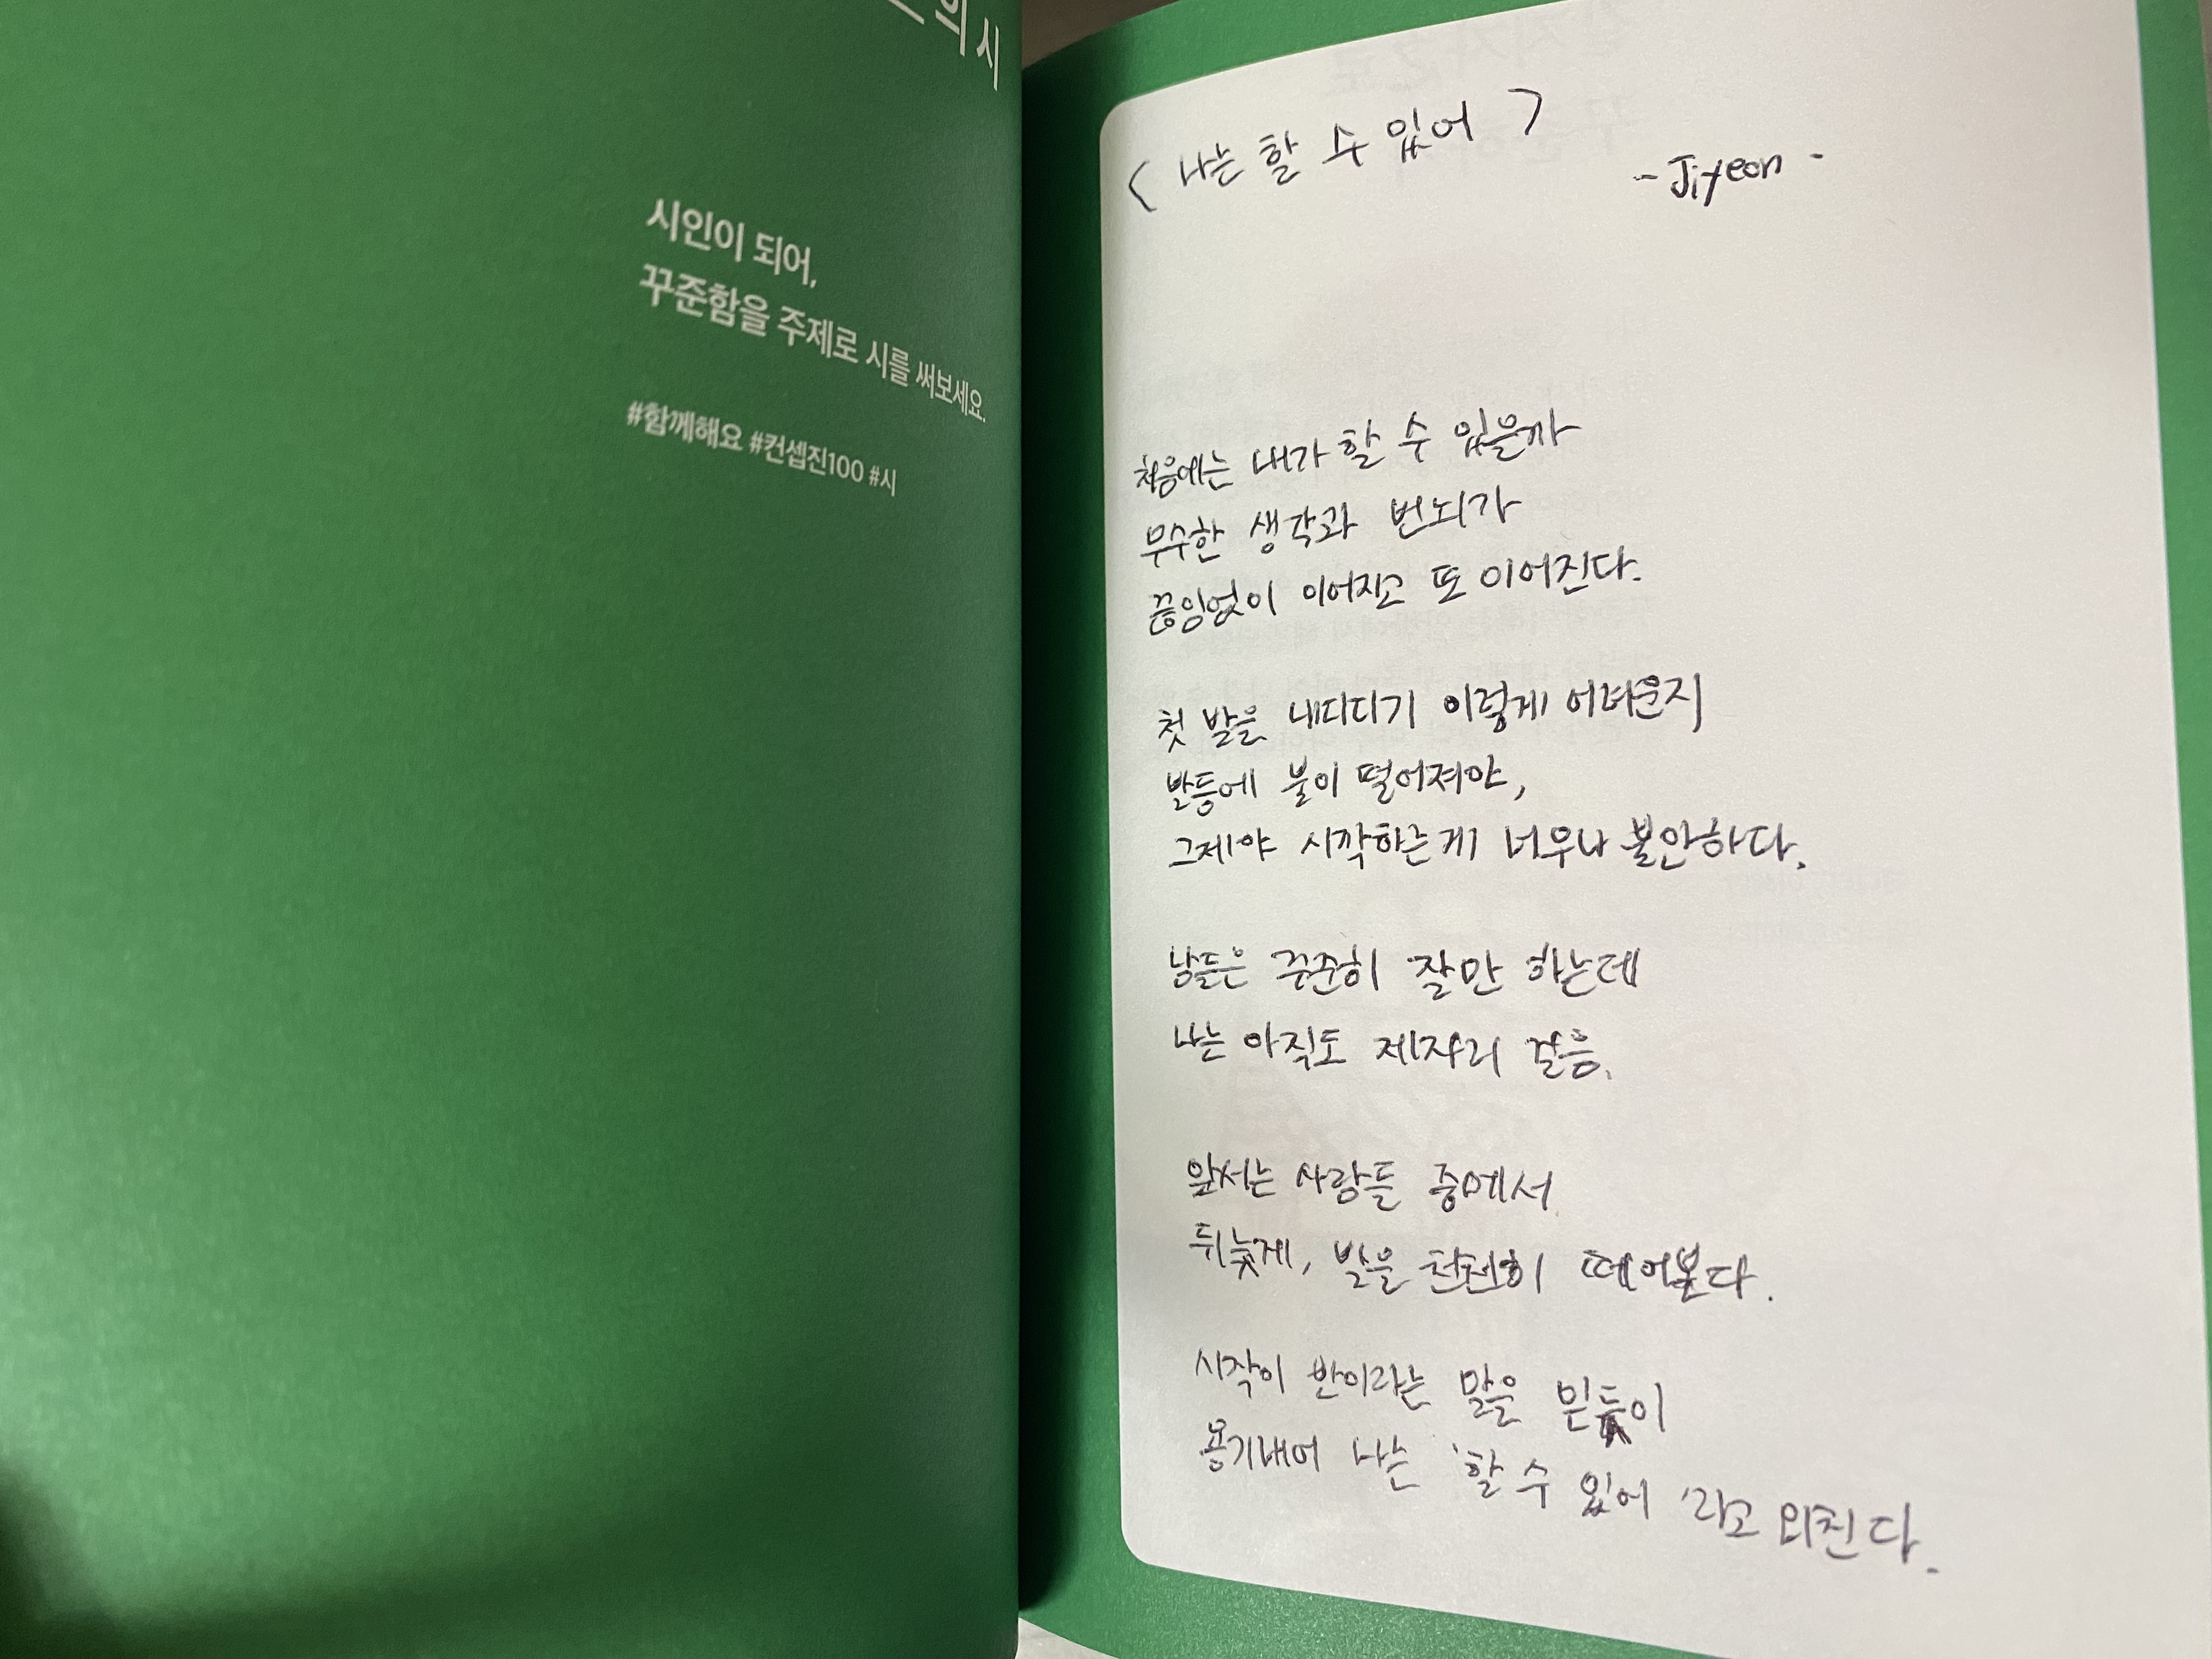 의 시
시인이 되어,
꾸준함을 주제로 시를 써보세요.
#함께해요 #컨셉진100 #시
< 나는 할 수 있어 >
- Jiyeon -
처음에는 내가 할 수 있을까
무수한 생각과 번뇌가
끊임없이 이어지고 또 이어진다.
첫 발을 내디디기 이렇게 어려운지
발등에 불이 떨어져야,
그제야 시작하는게 너무나 불안하다.
남들은 꾸준히 잘만 하는데
나는 아직도 제자리 걸음.
앞서는 사람들 중에서
뒤늦게, 발을 천천히 떼어본다.
시작이 반이라는 말을 믿듯이
용기내어 나는 '할 수 있어'라고 외친다.